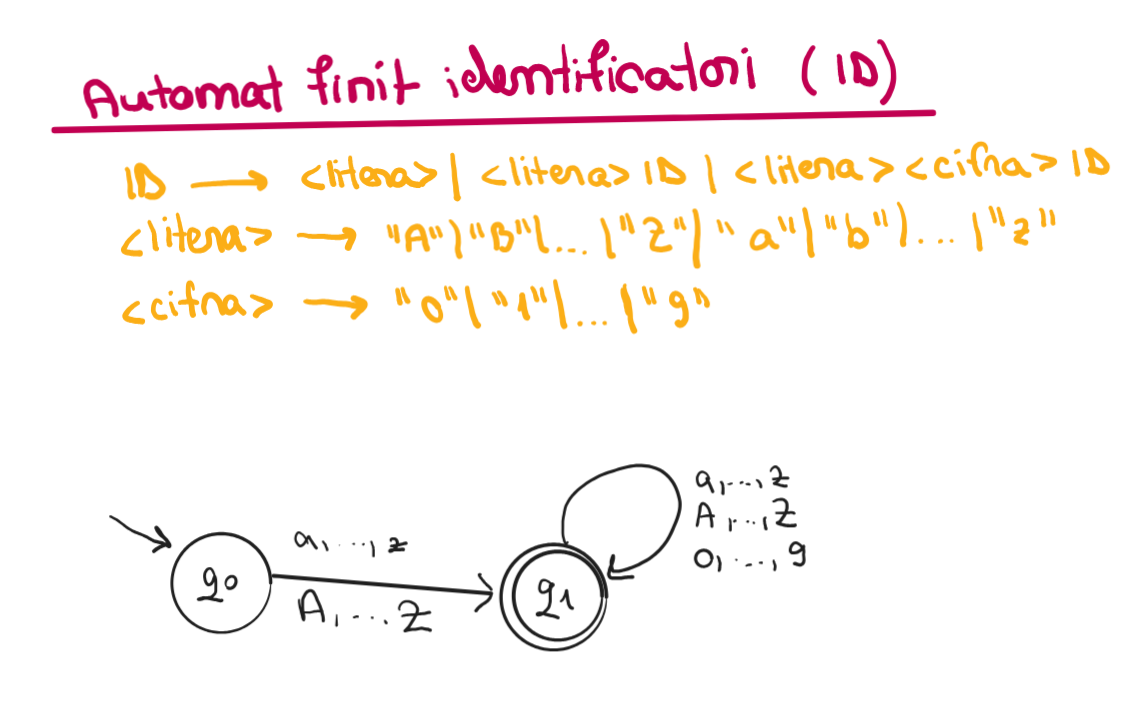 Automat finit identificatori (ID)
ID → <litera> | <litera> ID | <litera> <cifra> ID
<litera> → "A" | "B" | ... | "Z" | "a" | "b" | ... | "z"
<cifra> → "0" | "1" | ... | "9"
a, ..., z
A, ..., Z
0, ..., 9
a, ..., z
q0
A, ... Z
q1